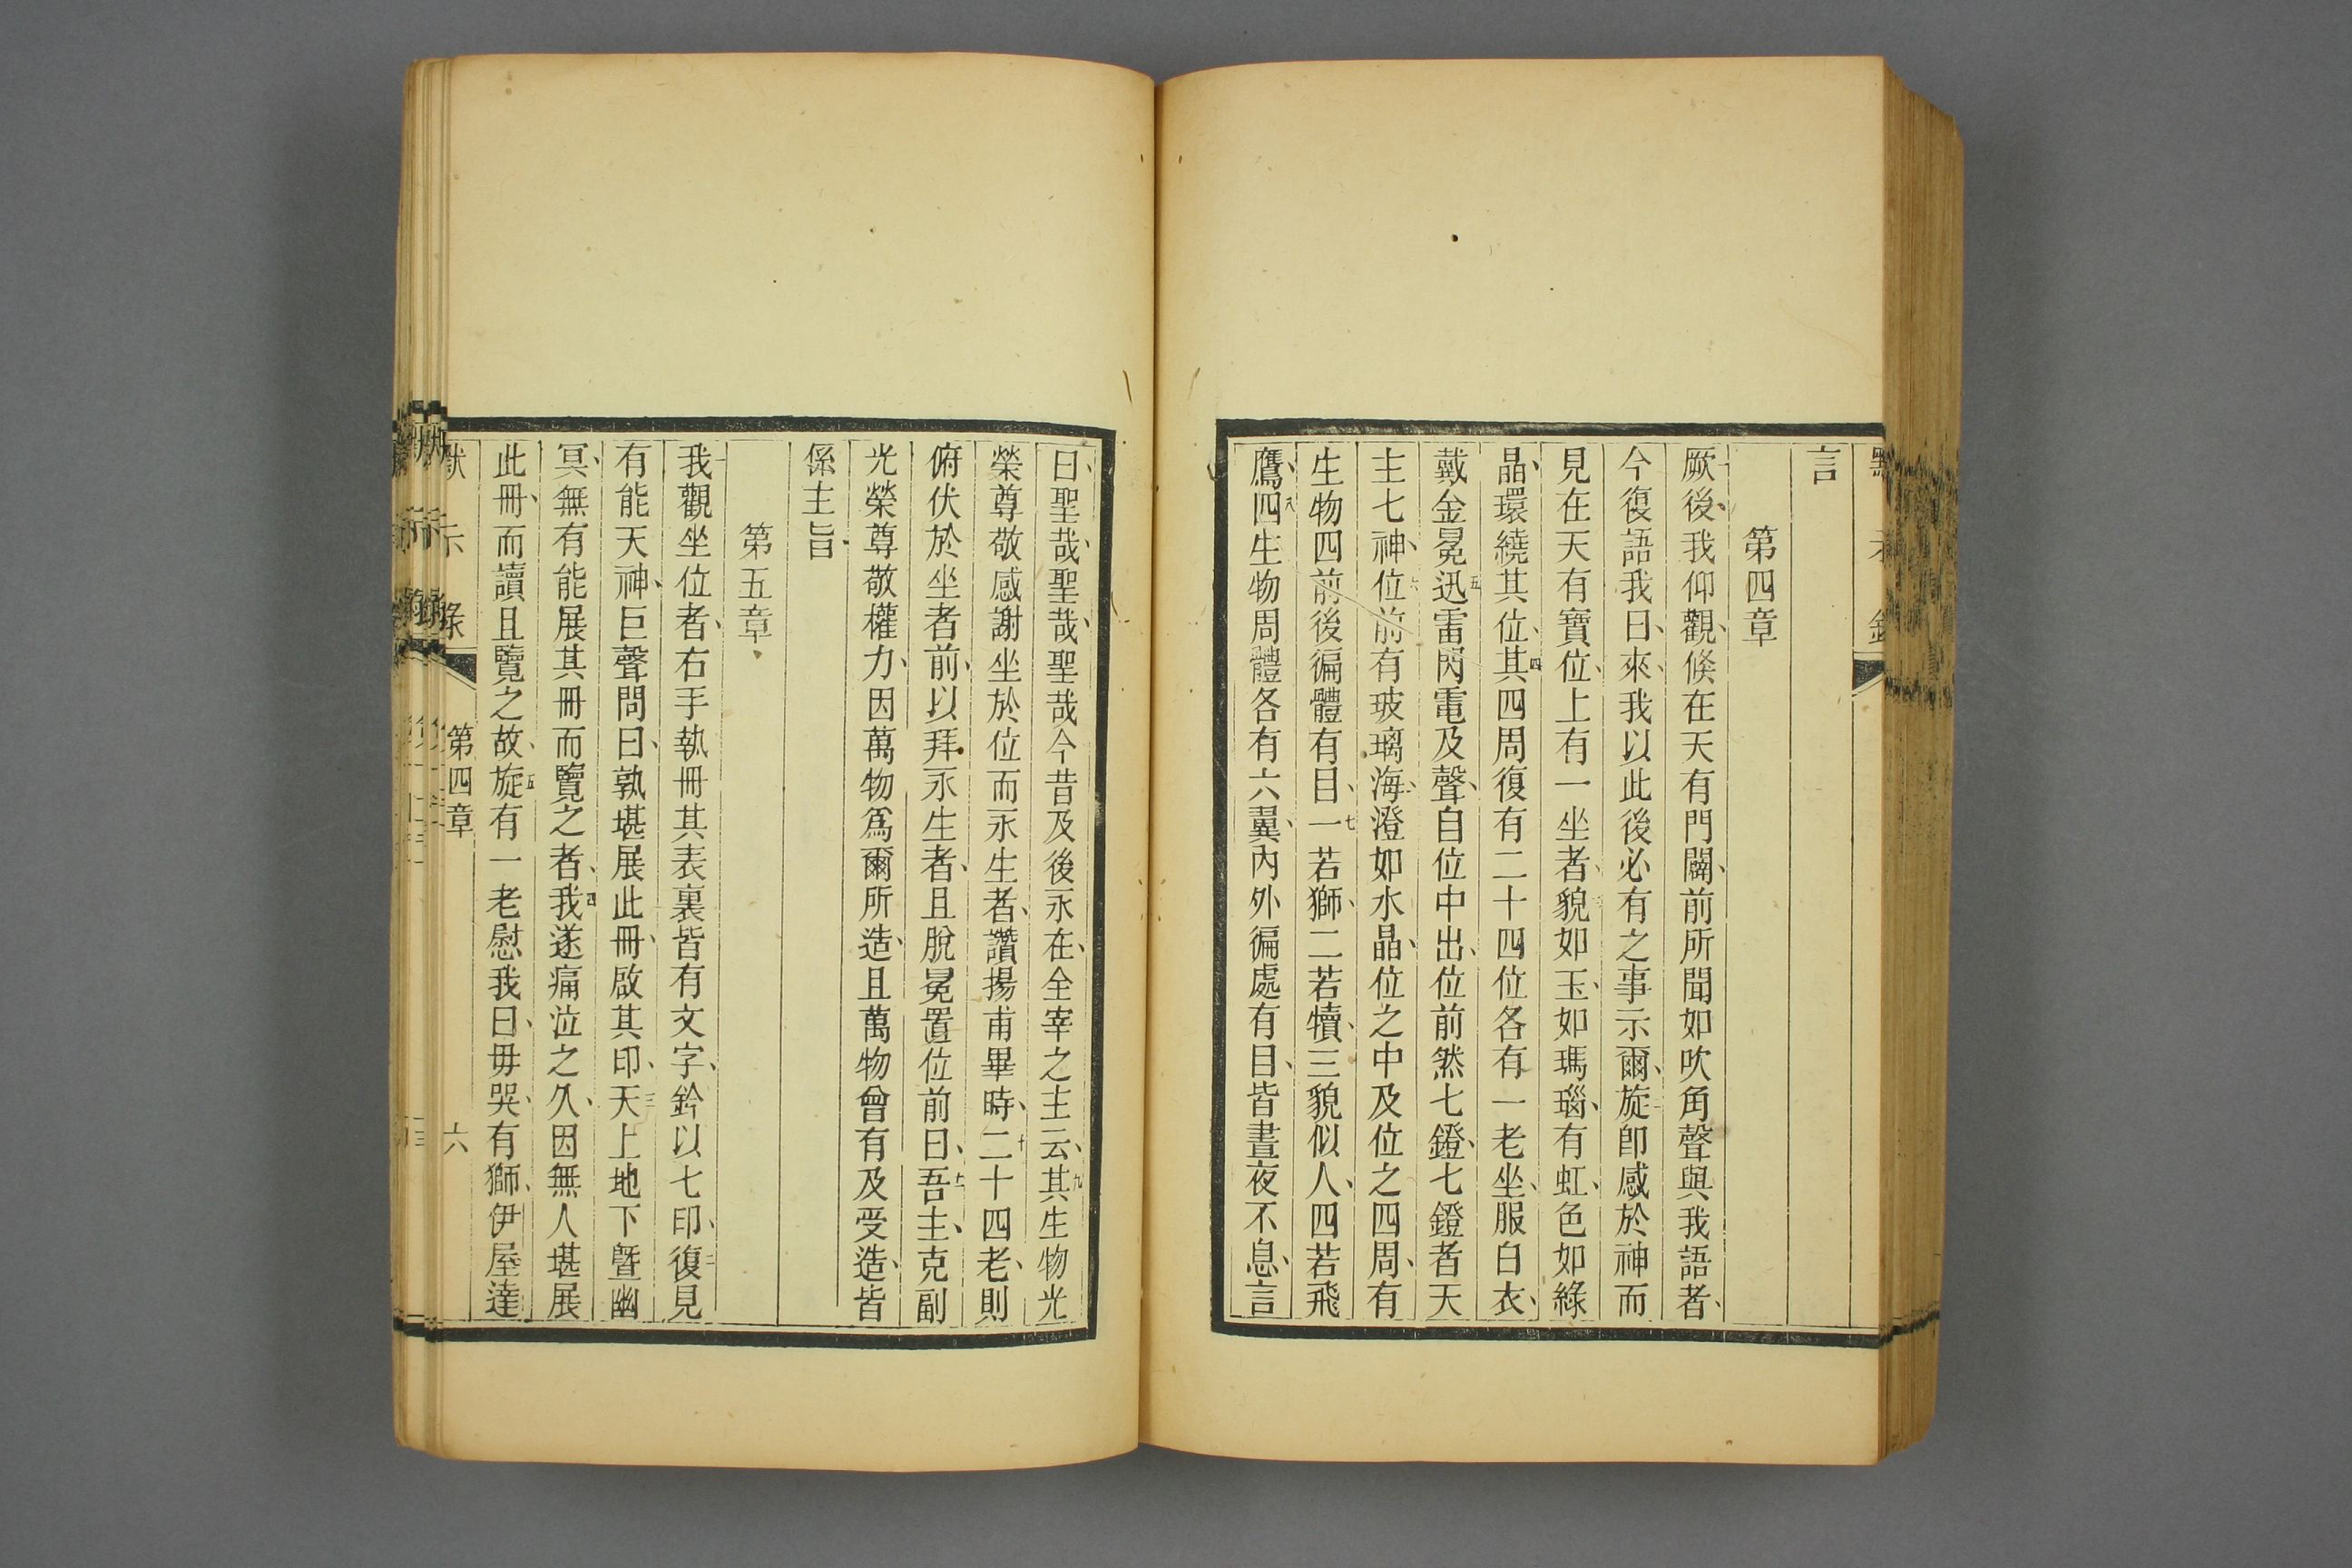 言
第四章
一厥後、我仰觀、倏在天有門闢、前所聞如吹角聲與我語者、
今復語我曰、來、我以此後必有之事示爾、二旋卽感於神而
見在天有寶位、上有一坐者、三貌如玉、如瑪瑙、有虹、色如綠
晶、環繞其位、四其四周復有二十四位各有一老坐、服白衣、
戴金冕、五迅雷閃電及聲、自位中出、位前然七鐙、七鐙者天
主七神、六位前有玻璃海、澄如水晶、位之中及位之四周、有
生物四前後徧體有目、七一若獅、二若犢、三貌似人、四若飛
鷹、八四生物周體各有六翼、內外徧處有目、皆晝夜不息、言
曰、聖哉、聖哉、聖哉今昔及後永在、全宰之主云、九其生物光
榮尊敬感謝坐於位而永生者、讚揚甫畢時、十二十四老、則
俯伏於坐者前、以拜永生者、且脫冕置位前曰、十一吾主、克副
光榮尊敬權力、因萬物爲爾所造、且萬物曾有及受造、皆
係主旨、
第五章
一我觀坐位者、右手執冊其表裏皆有文字、鈐以七印、二復見
有能天神、巨聲問曰、孰堪展此冊、啟其印、三天上地下曁幽
冥、無有能展其冊而覽之者、四我遂痛泣之久、因無人堪展
此冊、而讀且覽之故、五旋有一老慰我曰、毋哭、有獅、伊屋達
默示錄
第四章
六